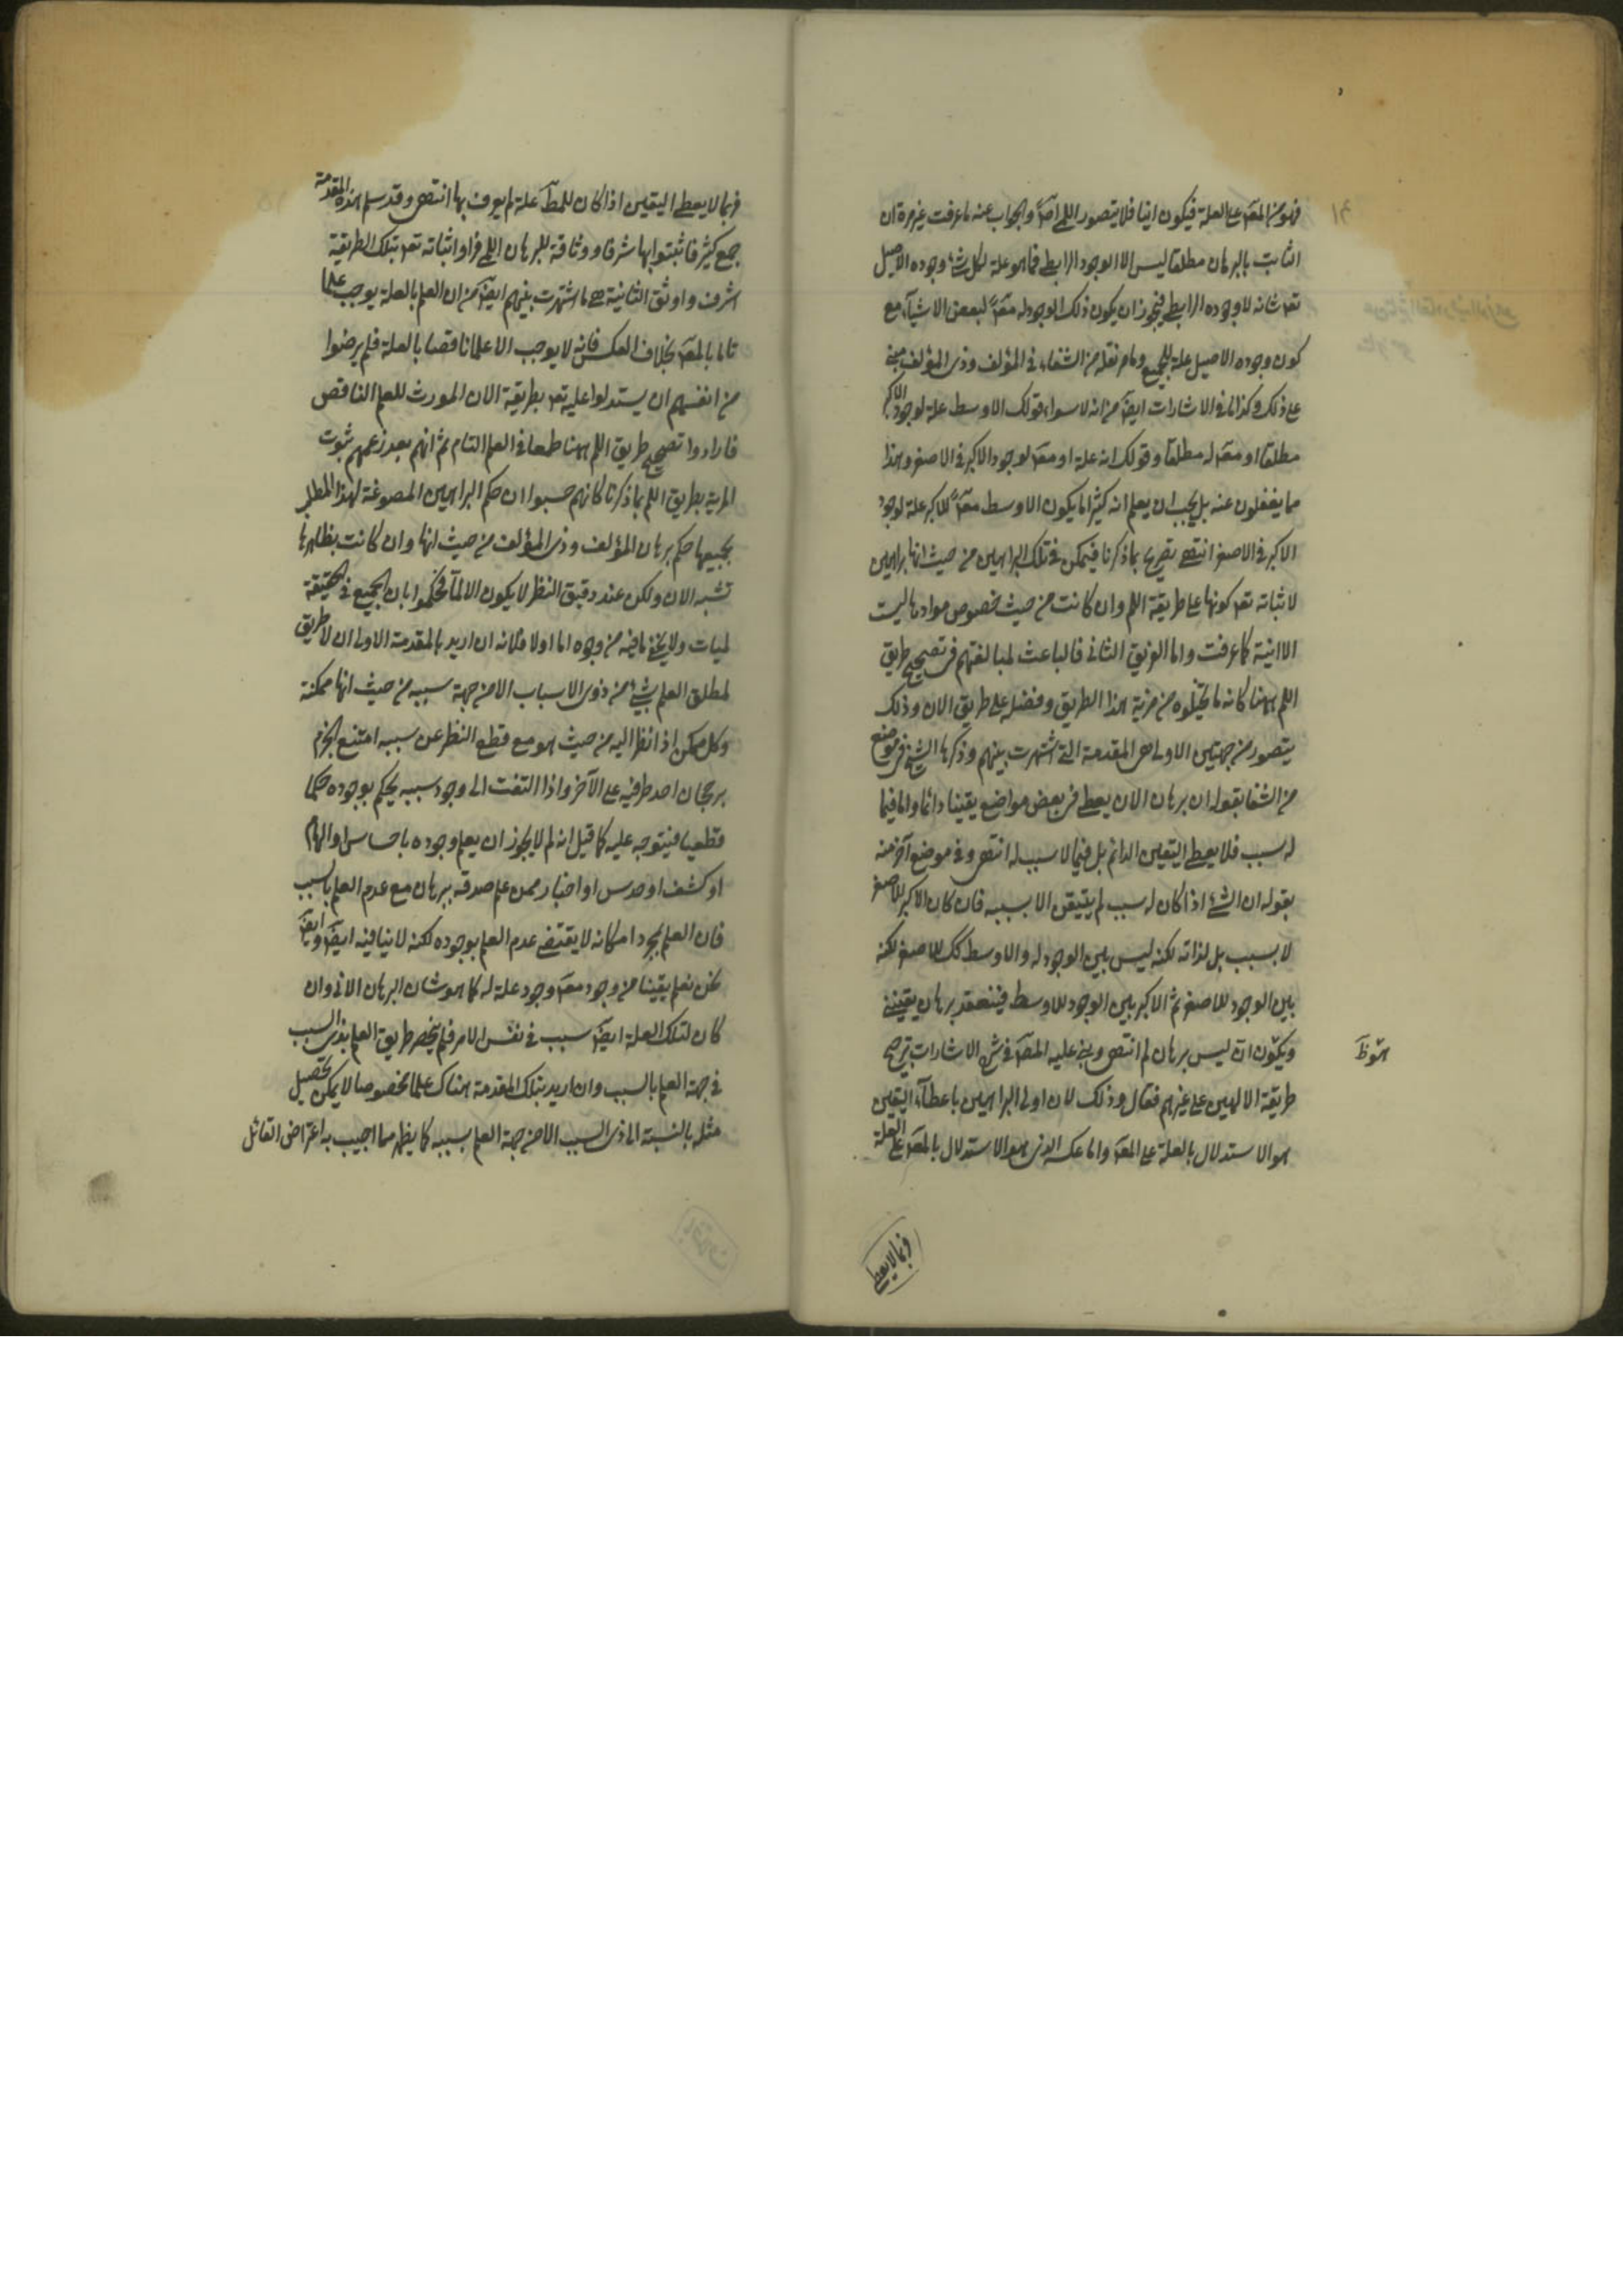 فهو من المعَ على العلة فيكون انيا فلا يتصور اللمى اصلاً والجواب عنه ما عرفت غير مرة ان
الثابت بالبرهان مطلقا ليس الا الوجود الرابطى فما هو علة لكل شئ وجوده الاصيل
تعه شانه لا وجوده الرابطى فيجوز ان يكون ذلك الوجود له معَ لبعض الاشيآء مع
كون وجوده الاصيل علة للجميع وما مر نقله من الشفاء فى المؤلف وذى المؤلف مبنى
على ذلك وكذا ما فى الاشارات ايضَ من انه لا سواء قولك الاوسط علة لوجود الاكبر
مطلقا او معَ له مطلقا وقولك انه علة او معَ لوجود الاكبر فى الاصغر وهذا
مما يغفلون عنه بل يجب ان يعلم انه كثيرا ما يكون الاوسط معَ للاكبر علة لوجود
الاكبر فى الاصغر انتهى تصريح بما ذكرنا فيمكن فى تلك البراهين من حيث انها براهين
لاثباته تعه كونها على طريقة اللم وان كانت من حيث خصوص موادها ليست
الا انية كما عرفت واما الفريق الثانى فالباعث لمبالغتهم فى تصحيح طريق
اللم ههنا كانه ما تخيلوه من مزية هذا الطريق وفضله على طريق الان وذلك
يتصور من جهتين الاولى هى المقدمة التى اشتهرت بينهم وذكرها الشيخ فى موضع
من الشفا بقوله ان برهان الان يعطى فى بعض مواضع يقينا دائما واما فيما
له سبب فلا يعطى اليقين الدائم بل فيما لا سبب له انتهى وفى موضع آخر منه
بقوله ان الشئ اذا كان له سبب لم يتيقن الا بسببه فان كان الاكبر للاصغر
لا بسبب بل لذاته لكنه ليس بين الوجود له والاوسط كك للاصغر لكنه
بين الوجود للاصغر ثم الاكبر بين الوجود للاوسط فينعقد برهان يقينى
ويكون ان ليس برهان لم انتهى وبنى عليه المصَ فى شرح الاشارات ترجيح
طريقة الالهيين على غيرهم فقال وذلك لان اولى البراهين باعطآء اليقين
هو الاستدلال بالعلة على المعَ واما عكسه الذى هو الاستدلال بالمعَ على العلة
فربما لا يعطى
فربما لا يعطى اليقين اذا كان للمطَ علة لم يعرف بها انتهى وقد سلم هذه المقدمة
جمع كثير فاثبتوا بها شرفا ووثاقة للبرهان اللمى فراوا اثباته تعه بتلك الطريقة
اشرف واوثق الثانية هى ما اشتهرت بينهم ايضَ من ان العلم بالعلة يوجب علما
تاما بالمعَ بخلاف العكس فانه لا يوجب الا علما ناقصا بالعلة فلم يرضوا
من انفسهم ان يستدلوا عليه تعه بطريقة الان المورث للعلم الناقص
فارادوا تصحيح طريق اللم ههنا طمعا فى العلم التام ثم انهم بعد زعمهم ثبوت
المزية بطريق اللم بما ذكرنا كانهم حسبوا ان حكم البراهين المصوغة لهذا المطلب
بجميعها حكم برهان المؤلف وذى المؤلف من حيث انها وان كانت بظاهرها
تشبه الان ولكن عند دقيق النظر لا يكون الا لمآ فحكموا بان الجميع فى الحقيقة
لميات ولا يخفى ما فيه من وجوه اما اولا فلانه ان اريد بالمقدمة الاولى ان لا طريق
لمطلق العلم بشئ من ذوى الاسباب الا من جهة سببه من حيث انها ممكنة
وكل ممكن اذا نظر اليه من حيث هو مع قطع النظر عن سببه امتنع الجزم
برجحان احد طرفيه على الآخر واذا التفت الى وجود سببه يحكم بوجوده حكما
قطعيا فيتوجه عليه كما قيل انه لم لا يجوز ان يعلم وجوده باحساس او الهام
او كشف او حدس او اخبار ممن علم صدقه ببرهان مع عدم العلم بالسبب
فان العلم بمجرد امكانه لا يقتضى عدم العلم بوجوده لكنه لا ينافيه ايضَ وايضَ
نحن نعلم يقينا من وجود معَ وجود علة له كما هو شان البرهان الانى وان
كان لتلك العلة ايضَ سبب فى نفس الامر فلم ينحصر طريق العلم بذى السبب
فى جهة العلم بالسبب وان اريد بتلك المقدمة هناك علما مخصوصا لا يمكن تحصيل
مثله بالنسبة الى ذى السبب الا من جهة العلم بسببه كما يظهر مما اجيب به اعتراض القائل